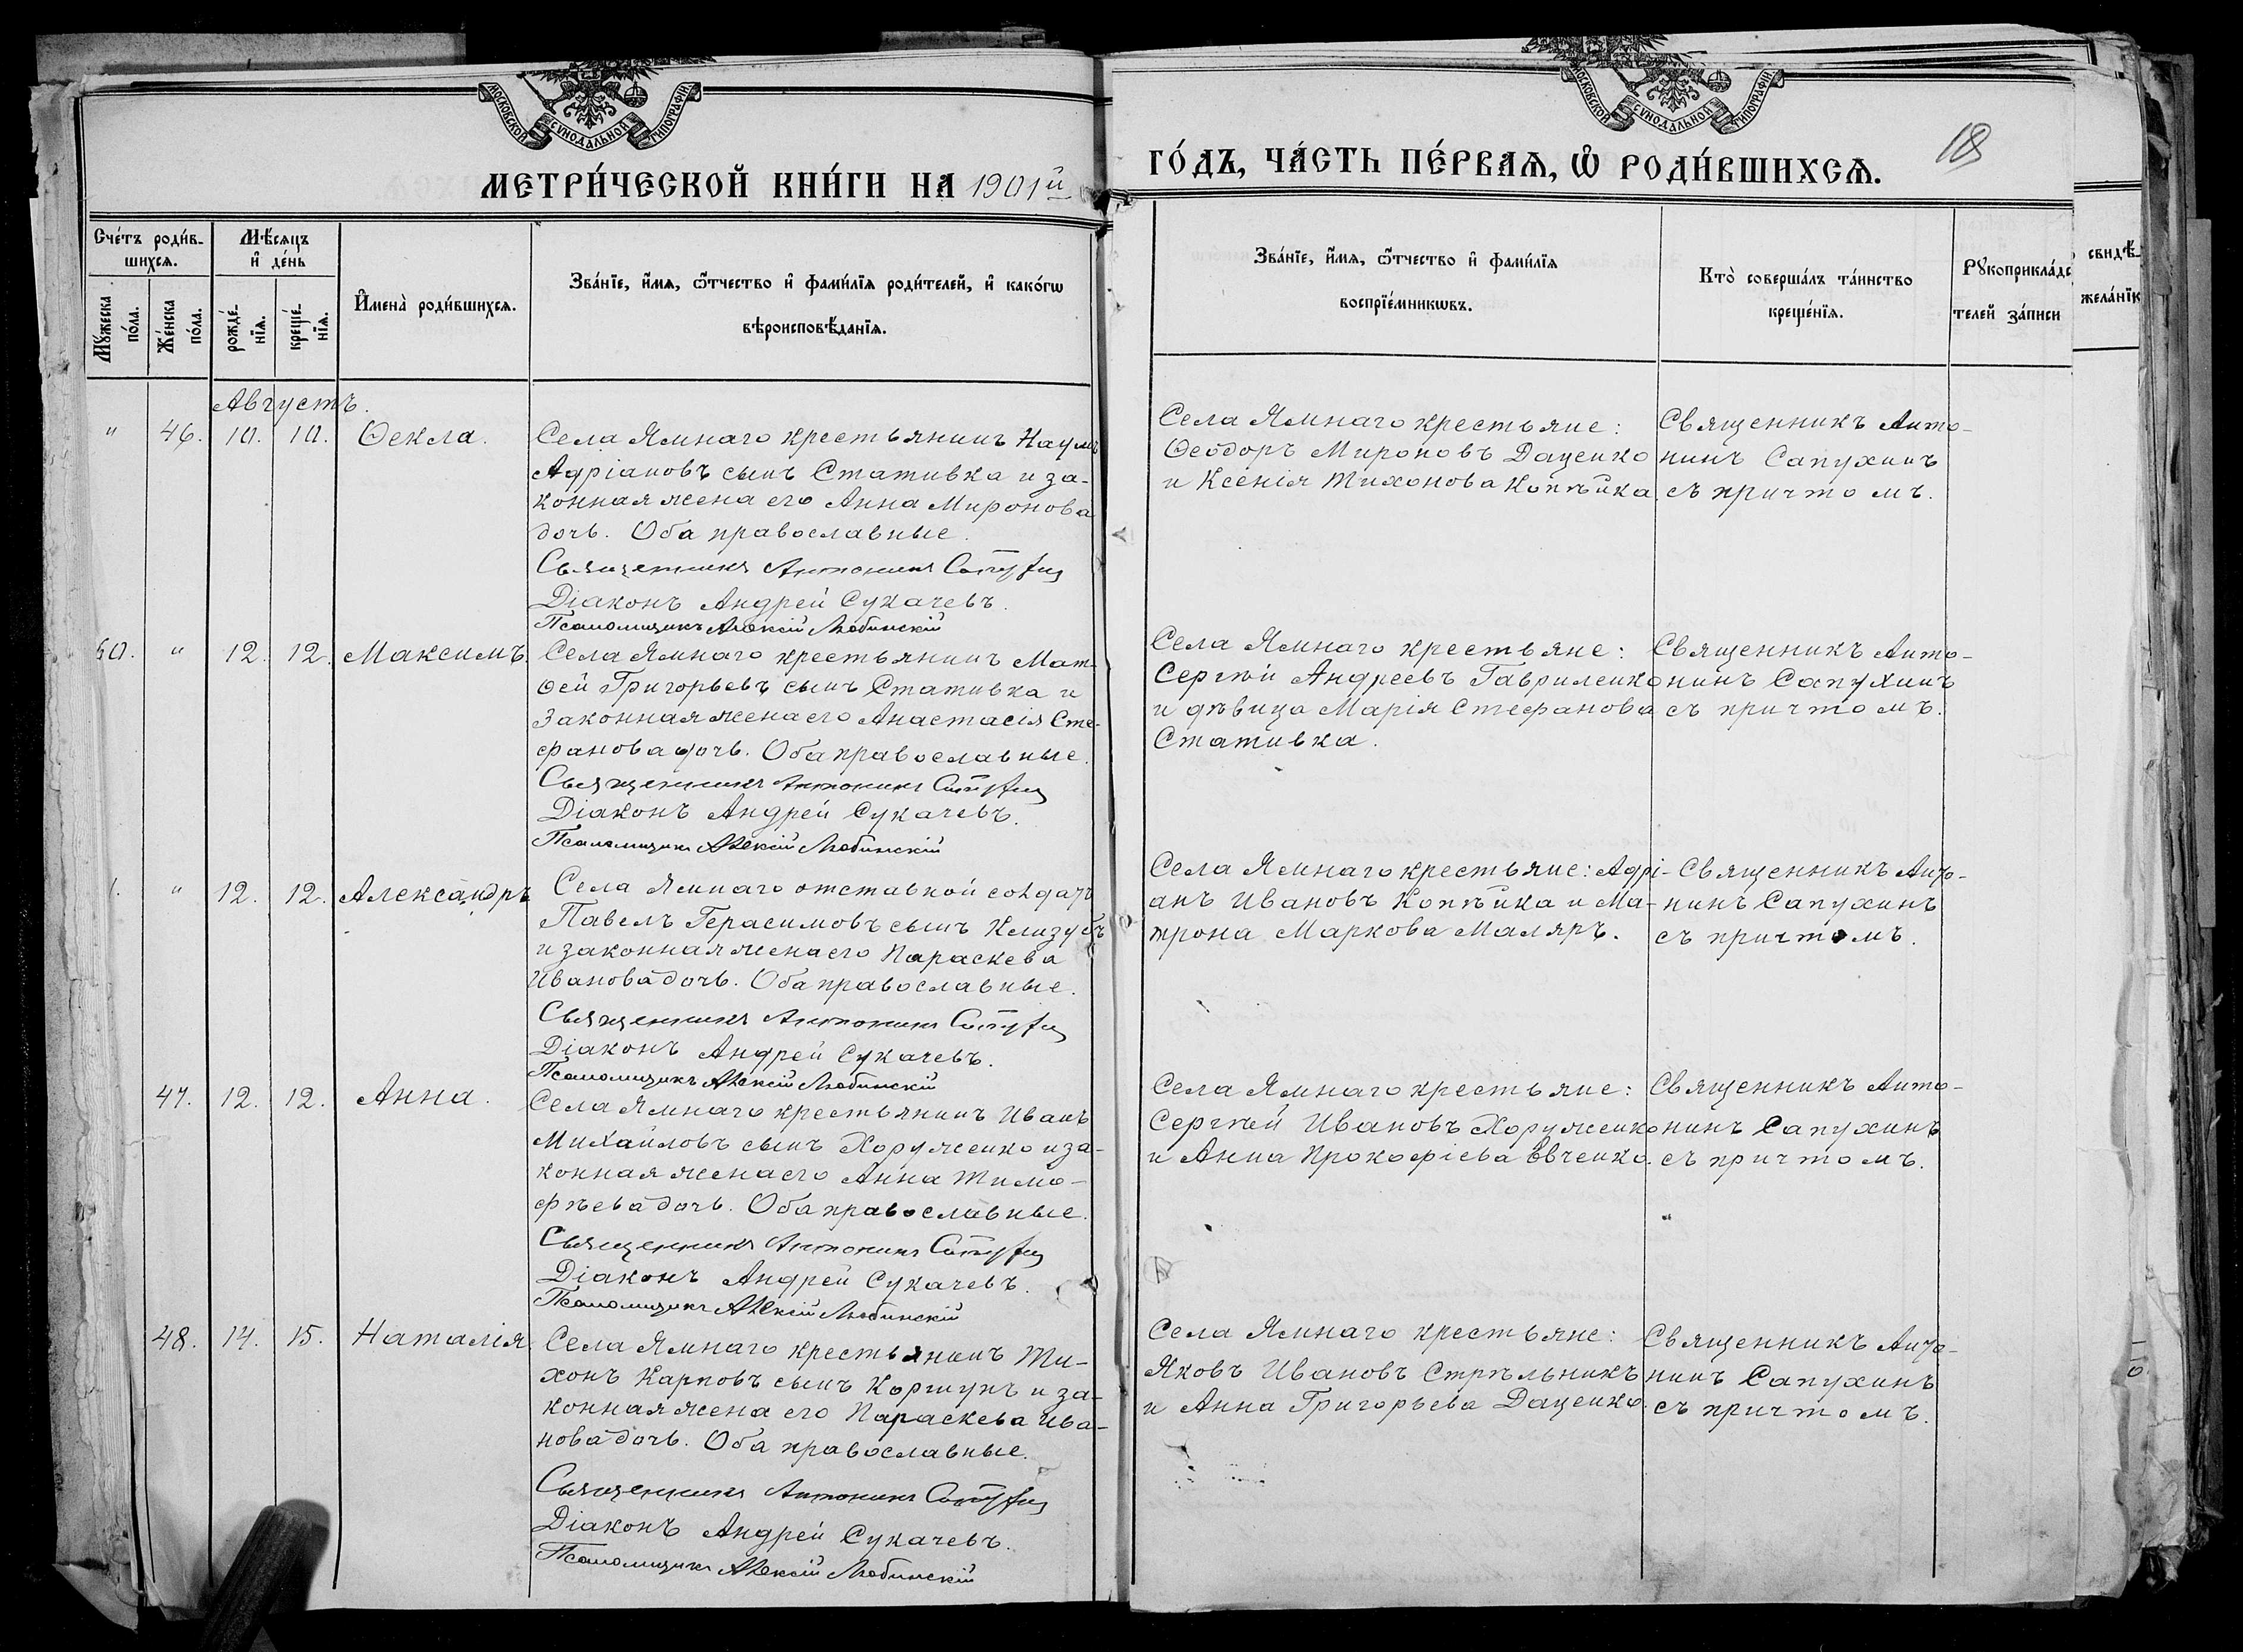 МОСКОВСКОЙ СѴНОДАЛЬНОЙ ТИПОГРАФІИ
МОСКОВСКОЙ СѴНОДАЛЬНОЙ ТИПОГРАФІИ
МЕТРИ́ЧЕСКОЙ КНИ́ГИ НА 1901й
ГО́ДЪ, ЧА́СТЬ ПЕ́РВАѦ, Ѡ҆ РОДИ́ВШИХСѦ.
18
Сче́тъ роди́в-
шихсѧ.
Мꙋ́жеска по́ла.
Же́нска по́ла.
Мѣ́сѧцъ
и҆ де́нь
рожде́-
нїѧ.
креще́-
нїѧ.
И҆мена̀ роди́вшихсѧ.
Зва́нїе, и҆́мѧ, ѻ҆́тчество и҆ фами́лїѧ роди́телей, и҆ како́гѡ
вѣроисповѣ́данїѧ.
Зва́нїе, и҆́мѧ, ѻ҆́тчество и҆ фами́лїѧ
воспрїе́мникѡвъ.
Кто̀ соверша́лъ та́инство
креще́нїѧ.
Рꙋкоприкла́дс
телей за́писи
свидѣ́-
жела́нїю
Августъ.
" 46. 10. 10. Ѳекла.
Села Ямнаго крестьянинъ Наумъ
Адріановъ сынъ Стативка и за-
конная жена его Анна Миронова
дочь. Оба православные.
Священникъ Антонинъ Сапухин
Діаконъ Андрей Сукачевъ.
Псаломщикъ Алексій Любинскій
Села Ямнаго крестьяне:
Ѳеодоръ Мироновъ Даценко
и Ксенія Тихонова Копѣйка.
Священникъ Анто-
нинъ Сапухинъ
съ причтомъ.
50. " 12. 12. Максимъ.
Села Ямнаго крестьянинъ Мат-
ѳей Григорьевъ сынъ Стативка и
законная жена его Анастасія Сте-
фанова дочь. Оба православные.
Священникъ Антонинъ Сапухин
Діаконъ Андрей Сукачевъ.
Псаломщикъ Алексій Любинскій
Села Ямнаго крестьяне:
Сергѣй Андреевъ Гавриленко
и дѣвица Марія Стефанова
Стативка.
Священникъ Анто-
нинъ Сапухинъ
съ причтомъ.
1. " 12. 12. Александръ
Села Ямнаго отставной солдатъ
Павелъ Герасимовъ сынъ Клизубъ
и законная жена его Параскева
Иванова дочь. Оба православные.
Священникъ Антонинъ Сапухин
Діаконъ Андрей Сукачевъ.
Псаломщикъ Алексій Любинскій
Села Ямнаго крестьяне: Адрі-
анъ Ивановъ Копѣйка и Ма-
трона Маркова Маляръ.
Священникъ Анто-
нинъ Сапухинъ
съ причтомъ.
47. 12. 12. Анна.
Села Ямнаго крестьянинъ Иванъ
Михайловъ сынъ Хоруженко и за-
конная жена его Анна Тимо-
фѣева дочь. Оба православные.
Священникъ Антонинъ Сапухин
Діаконъ Андрей Сукачевъ.
Псаломщикъ Алексій Любинскій
Села Ямнаго крестьяне:
Сергѣй Ивановъ Хоруженко
и Анна Прокофіева Евченко.
Священникъ Анто-
нинъ Сапухинъ
съ причтомъ.
48. 14. 15. Наталія.
Села Ямнаго крестьянинъ Ти-
хонъ Карповъ сынъ Коршунъ и за-
конная жена его Параскева Ива-
нова дочь. Оба православные.
Священникъ Антонинъ Сапухин
Діаконъ Андрей Сукачевъ.
Псаломщикъ Алексій Любинскій
Села Ямнаго крестьяне:
Яковъ Ивановъ Стрѣльникъ
и Анна Григорьева Даценко.
Священникъ Анто-
нинъ Сапухинъ
съ причтомъ.